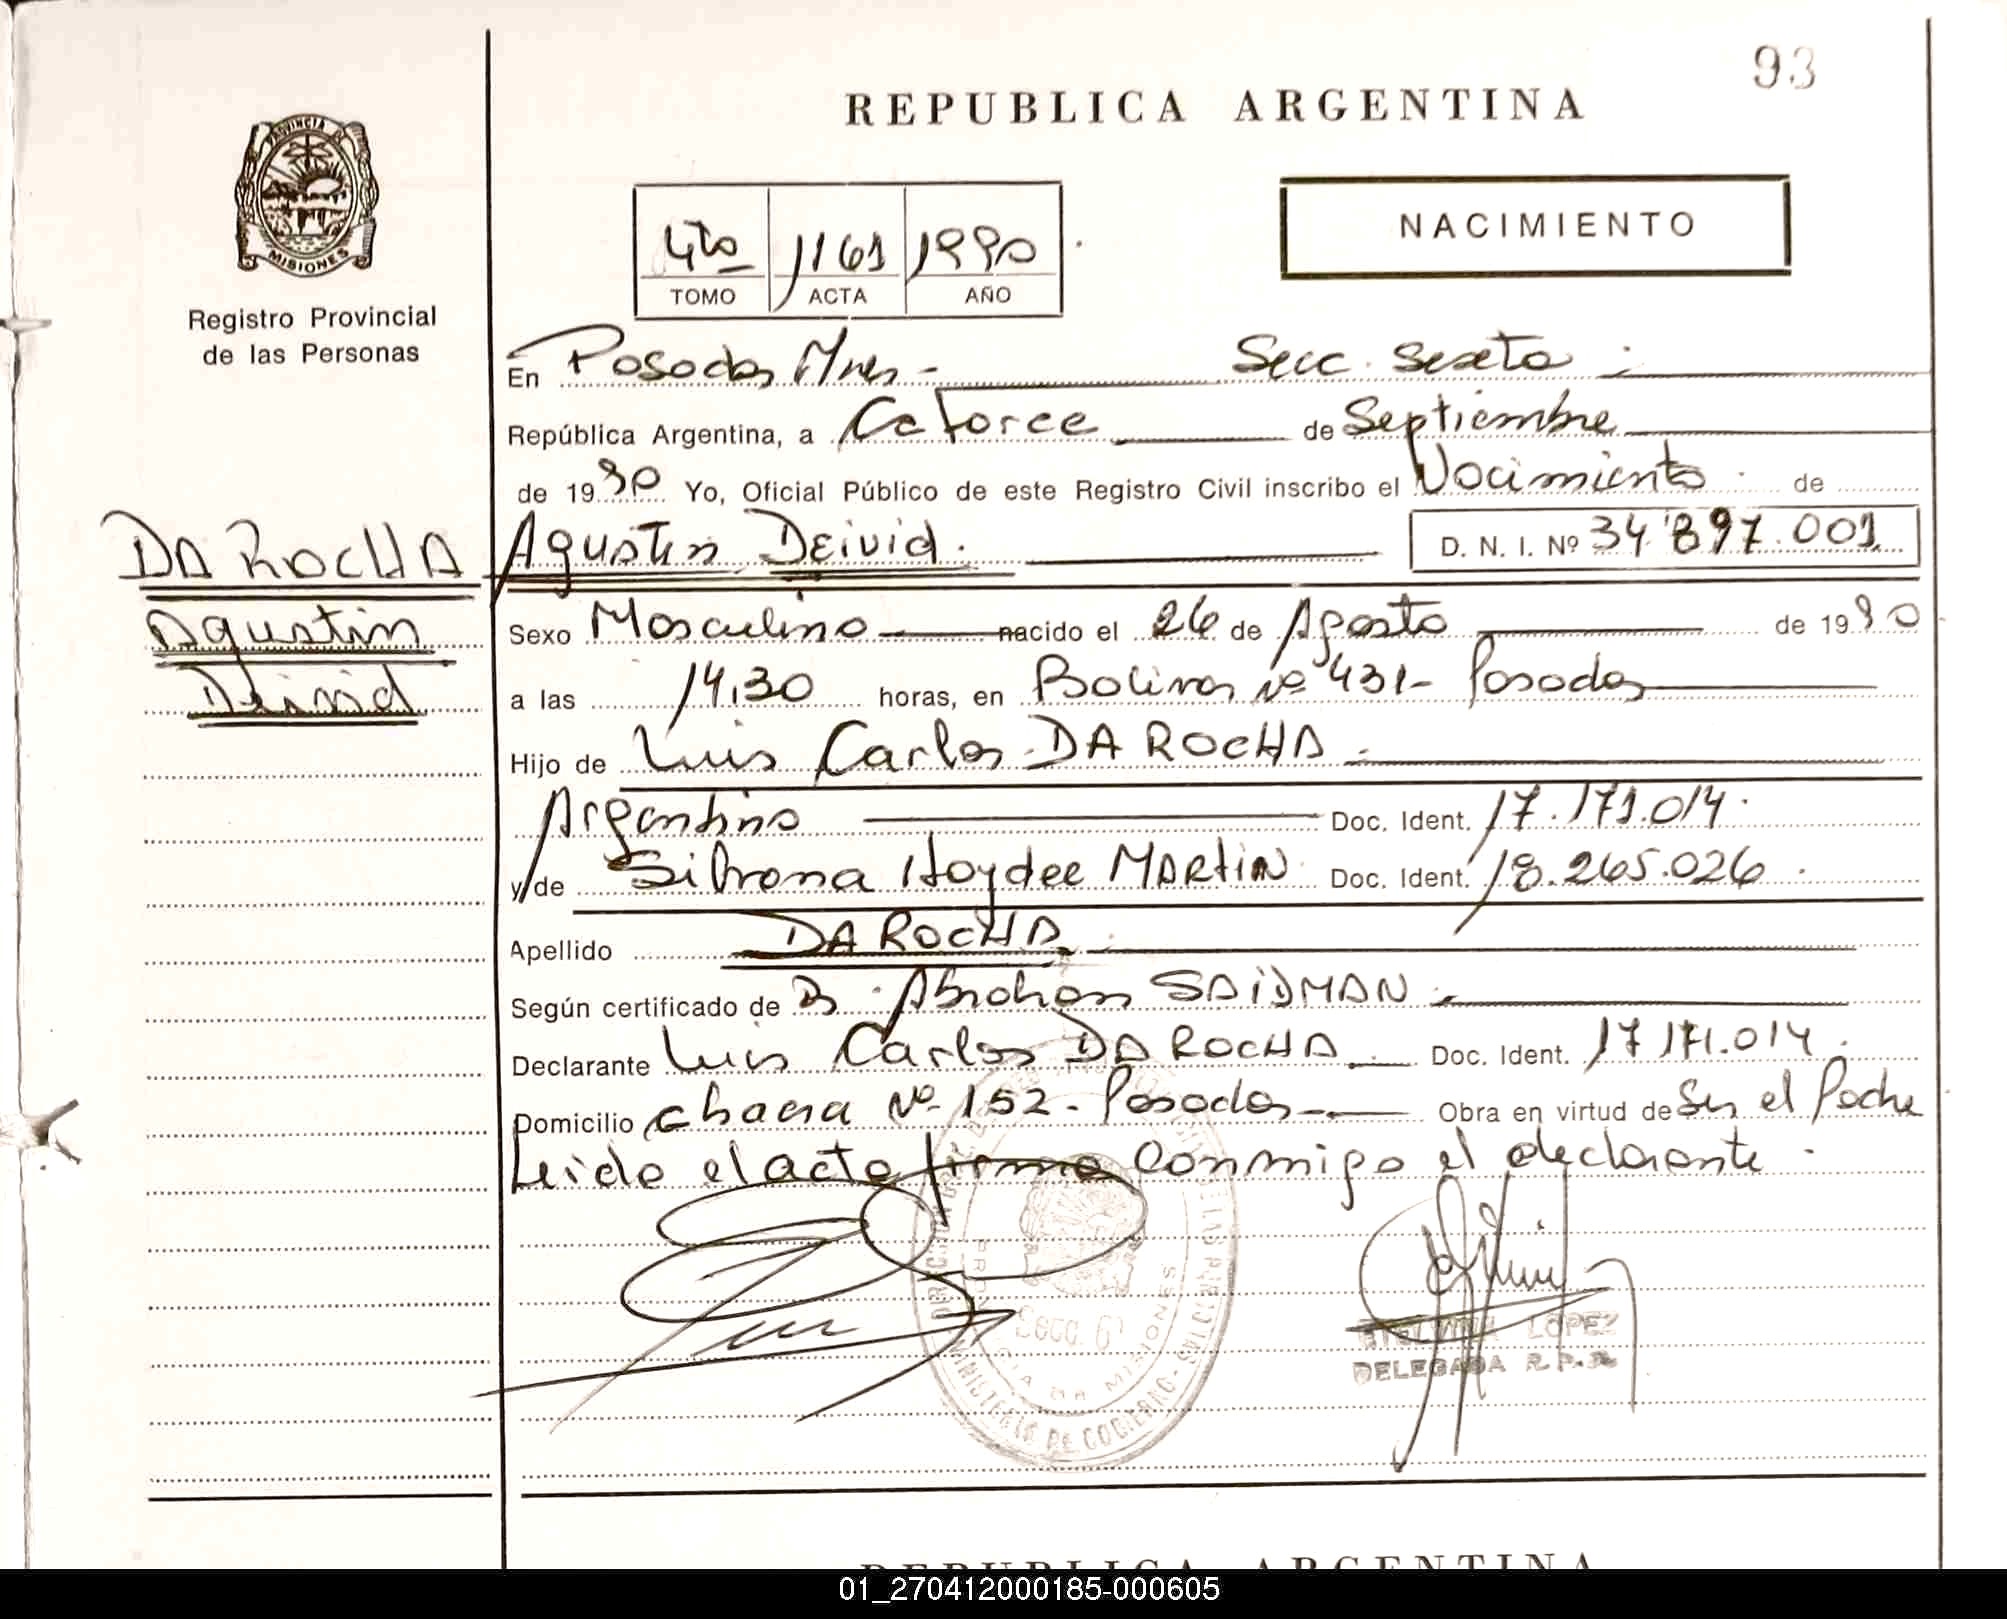 93
REPUBLICA ARGENTINA
NACIMIENTO
4to 1161 1990
TOMO ACTA AÑO
PROVINCIA DE
MISIONES
Registro Provincial
de las Personas
En Posadas Mnes - Secc. Sexta
República Argentina, a Catorce de Septiembre
de 1990 Yo, Oficial Público de este Registro Civil inscribo el Nacimiento de
DA ROCHA
Agustin
Deivid
Agustin Deivid. D. N. I. Nº 34.897.001
Sexo Masculino nacido el 26 de Agosto de 1990
a las 14,30 horas, en Bolivar Nº 431- Posadas
Hijo de Luis Carlos DA ROCHA
Argentino Doc. Ident. 17.171.014.
y de Silvana Haydee MARTIN Doc. Ident. 18.265.026
Apellido DA ROCHA
Según certificado de Abrahan SAIDMAN
Declarante Luis Carlos DA ROCHA Doc. Ident. 17.171.014.
Domicilio chacra Nº 152 - Posadas Obra en virtud de Ser el Padre
Leido el acta firma conmigo el declarante.
Secc. 6ª
MINISTERIO DE GOBIERNO
LOPEZ
DELEGADA R.P.P.
REPUBLICA ARGENTINA
01_270412000185-000605